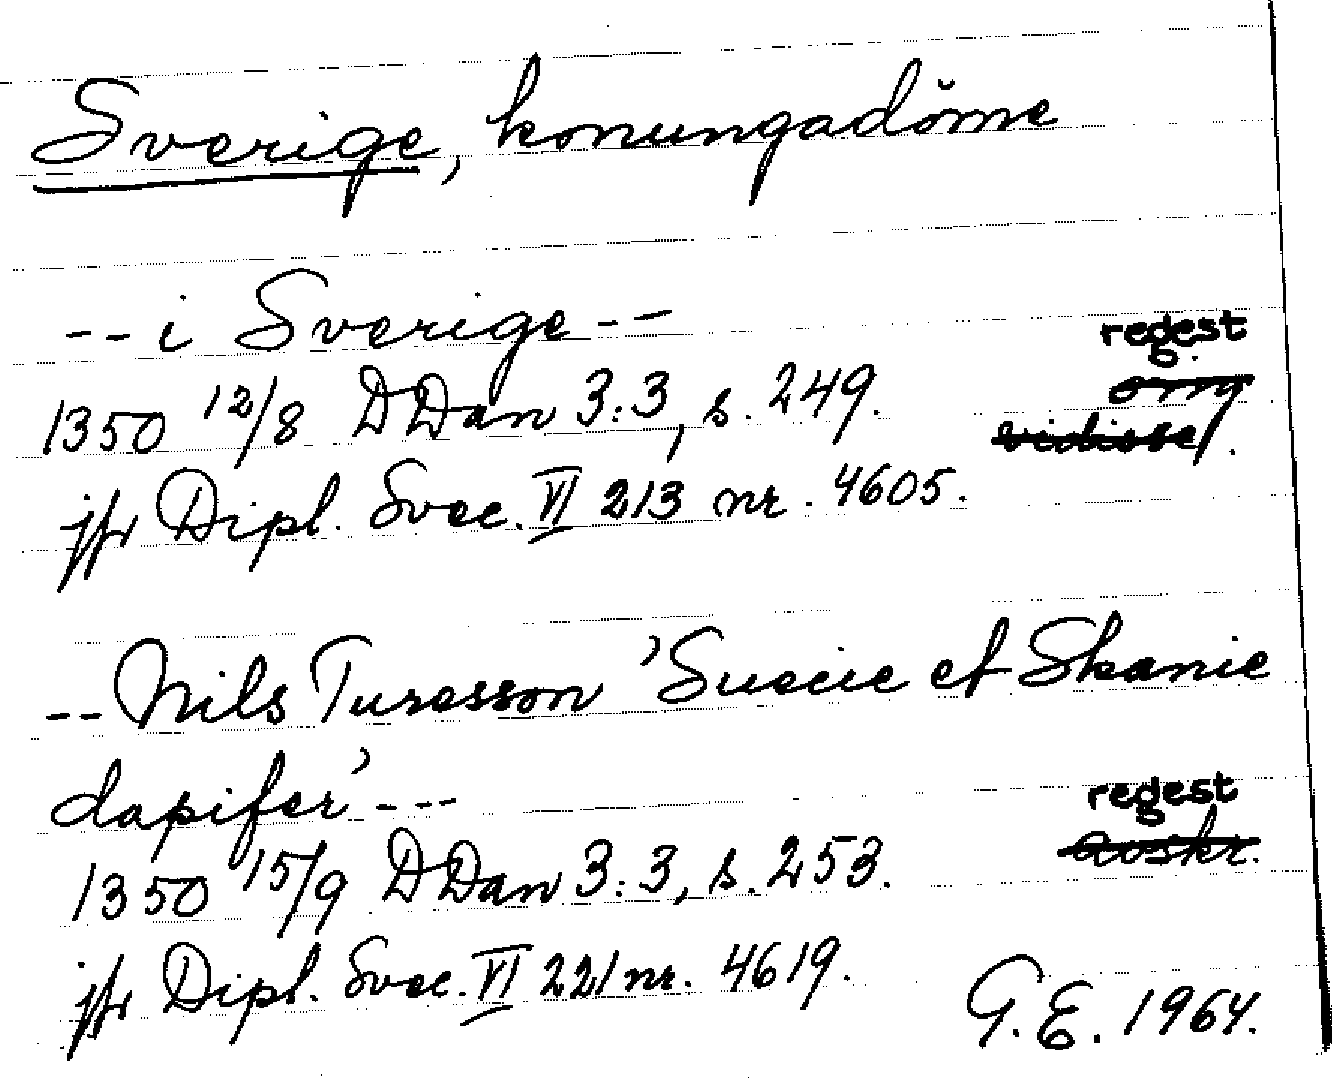 Sverige, konungadöme
-- i Sverige --
regest
1350 12/8 DDan 3:3, s. 249.
orig
vidisse/.
jfr Dipl. Svec. VI 213 nr. 4605.
-- Nils Turesson 'Suecie et Skanie
dapifer' ---
regest
1350 15/9 DDan 3:3, s. 253.
avskr.
jfr Dipl. Svec. VI 221 nr. 4619.
G.E. 1964.